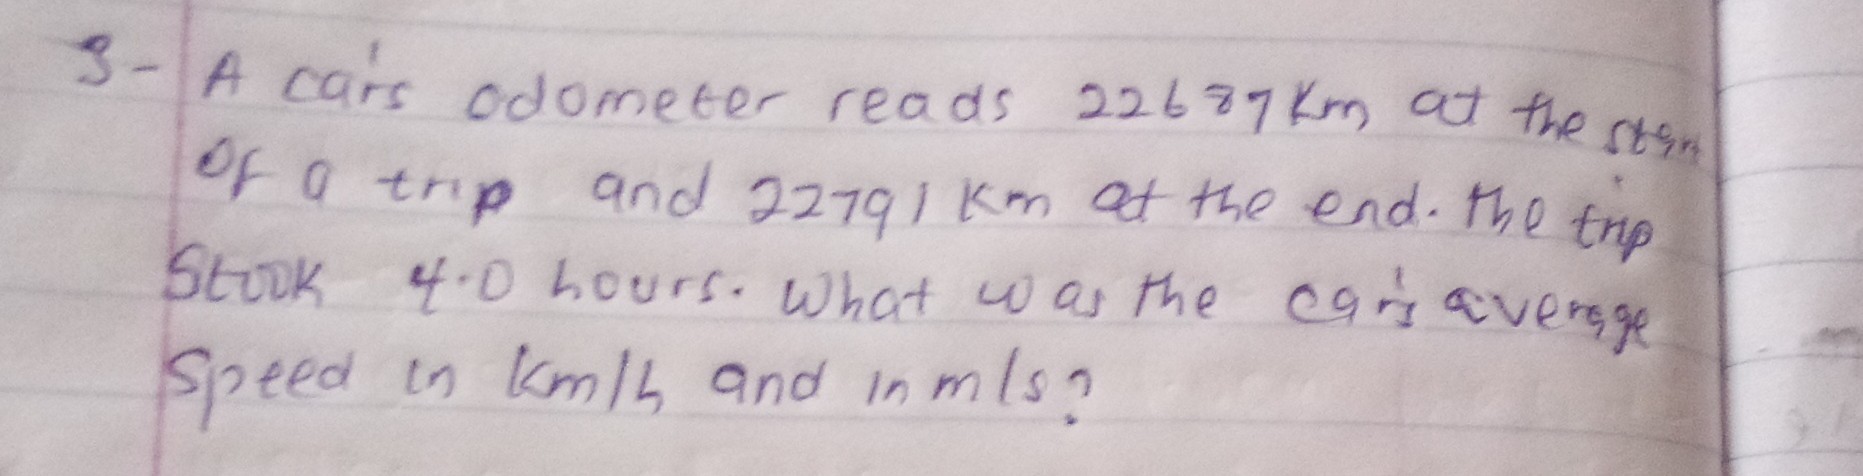 3- A car's odometer reads 22687 km at the
of a trip and 22791 km at the end. the trip
Stook 4.0 hours. What was the car's average
Speed in km/h and in m/s?